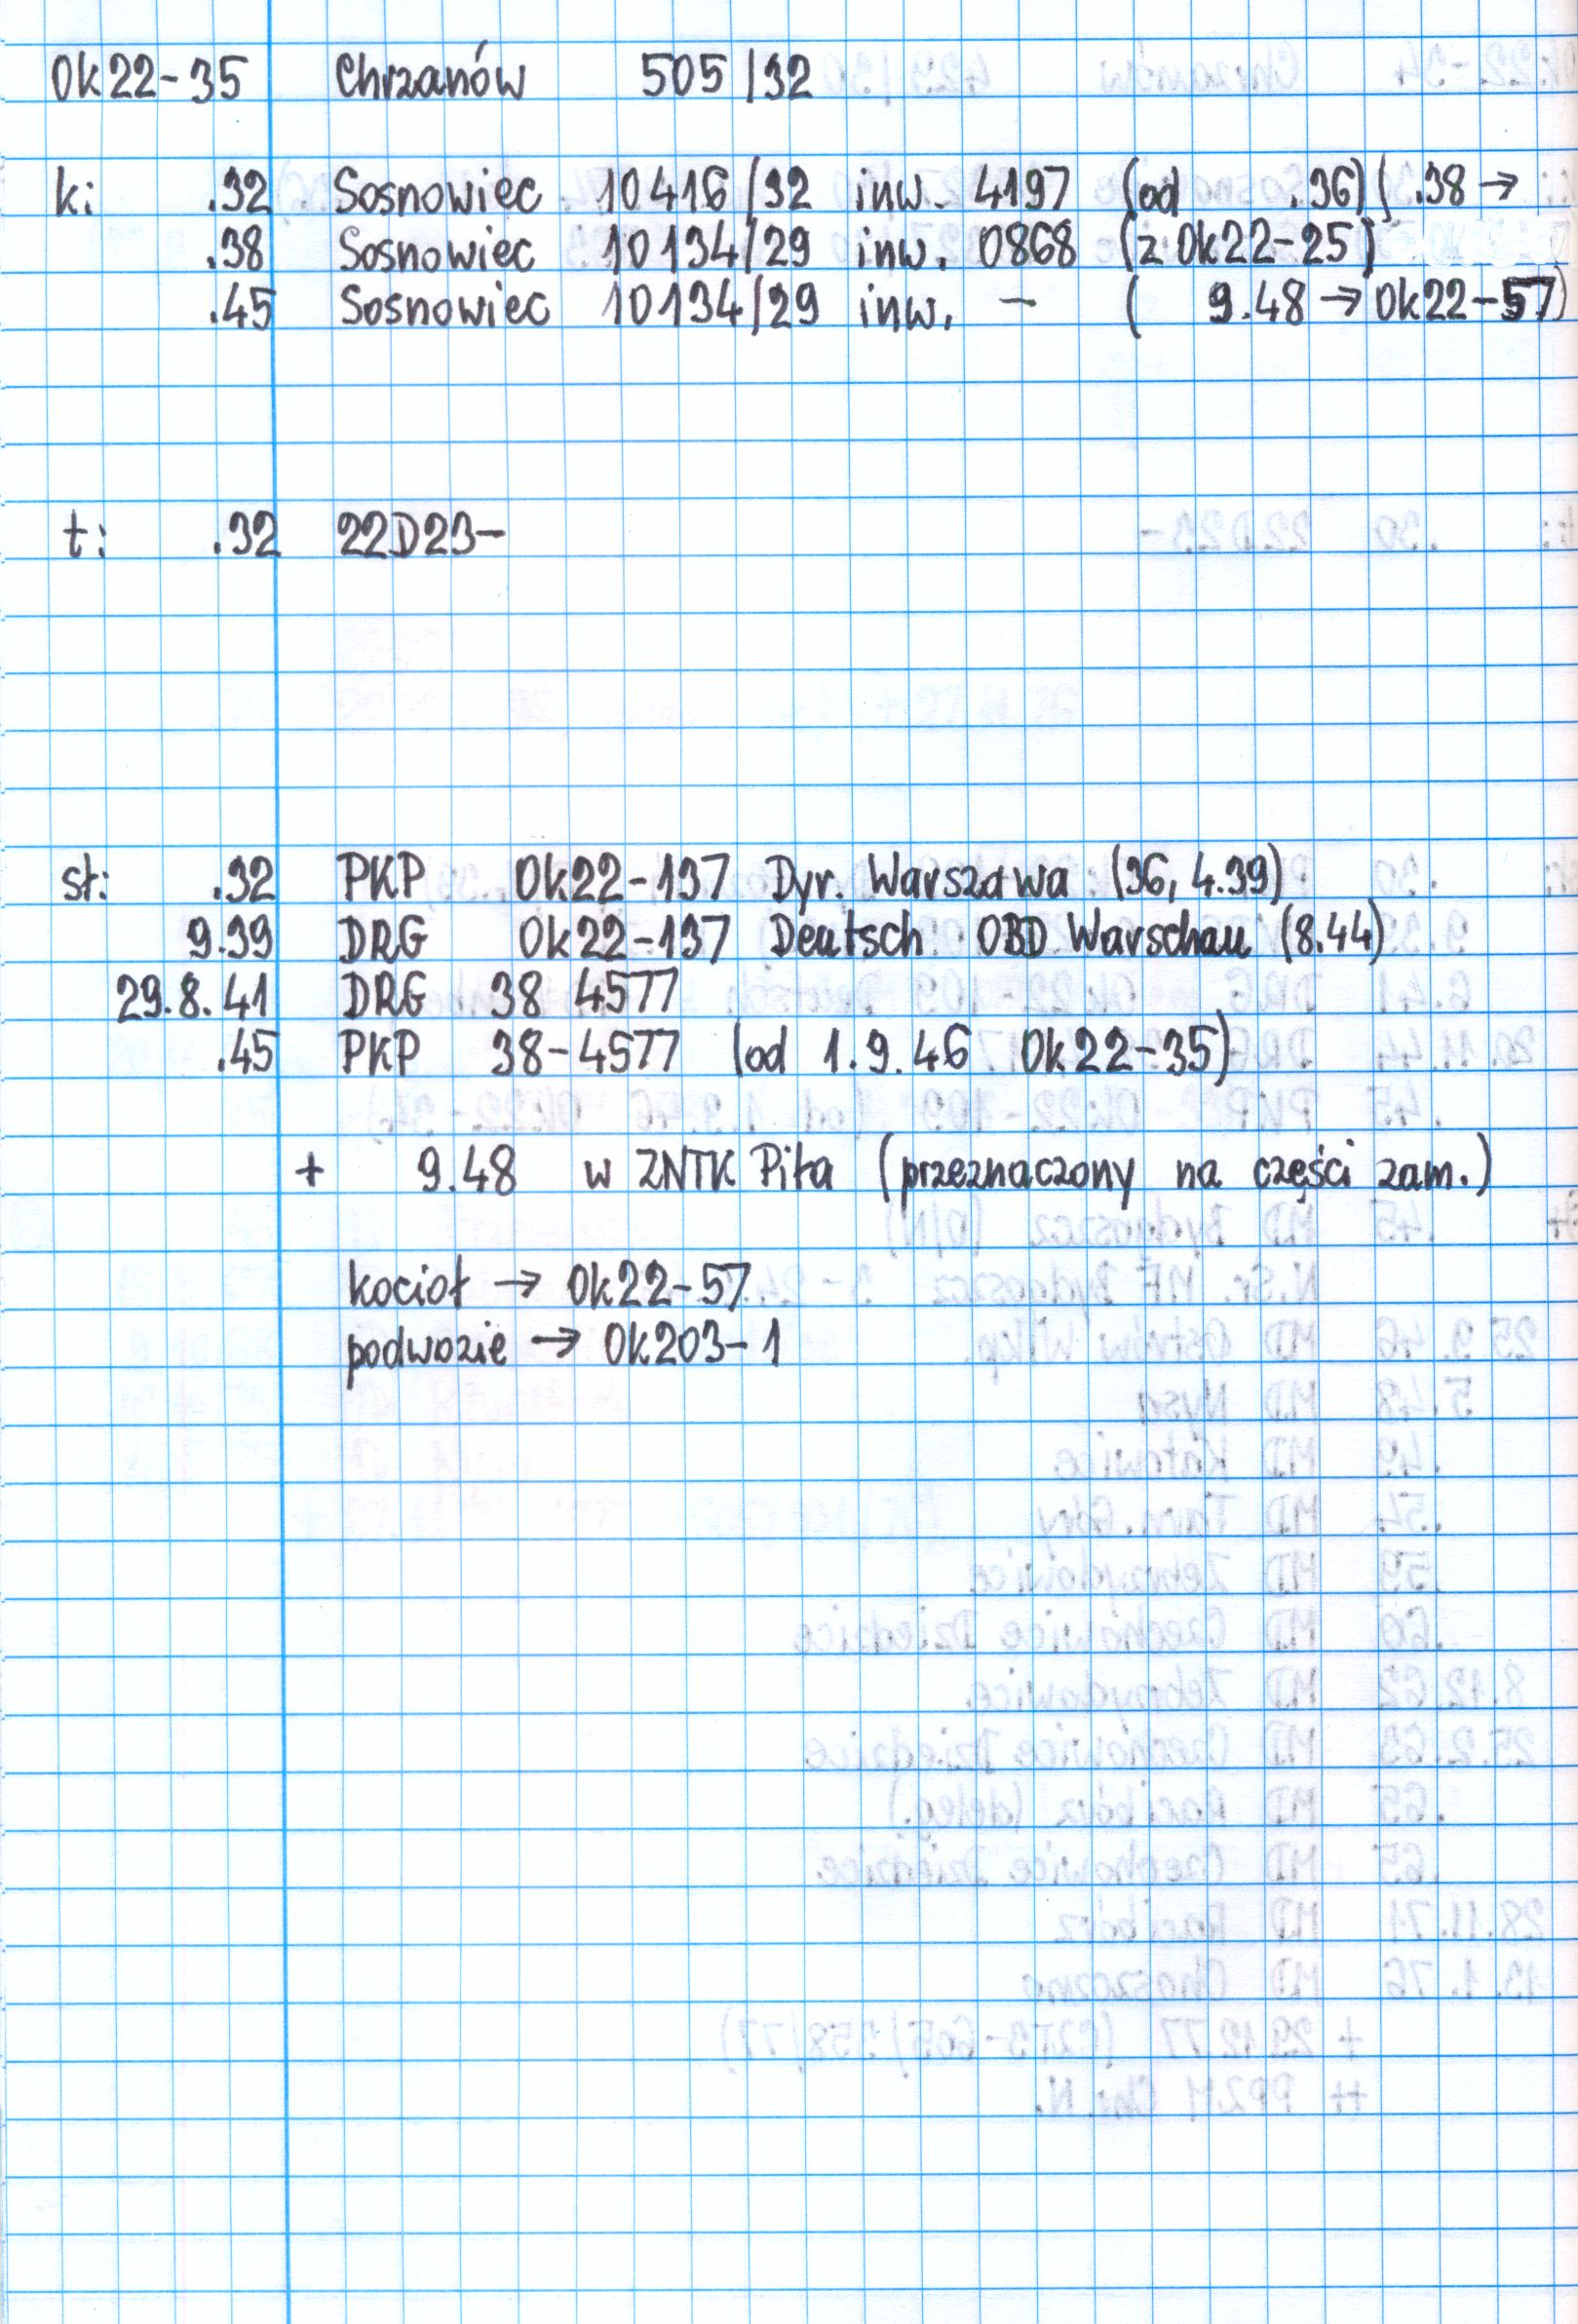 Ok22-35 Chrzanów 505/32
k: .32 Sosnowiec 10416/32 inw. 4197 (od .36) ( .38 →
.38 Sosnowiec 10134/29 inw. 0868 (z Ok22-25)
.45 Sosnowiec 10134/29 inw. - ( 9.48 → Ok22-57)
t: .32 22D23-
sł: .32 PKP Ok22-137 Dyr. Warszawa (36, 4.39)
9.39 DRG Ok22-137 Deutsch OBD Warschau (8.44)
29.8.41 DRG 38 4577
.45 PKP 38-4577 (od 1.9.46 Ok22-35)
+ 9.48 w ZNTK Piła (przeznaczony na części zam.)
kocioł → Ok22-57
podwozie → Ok203-1